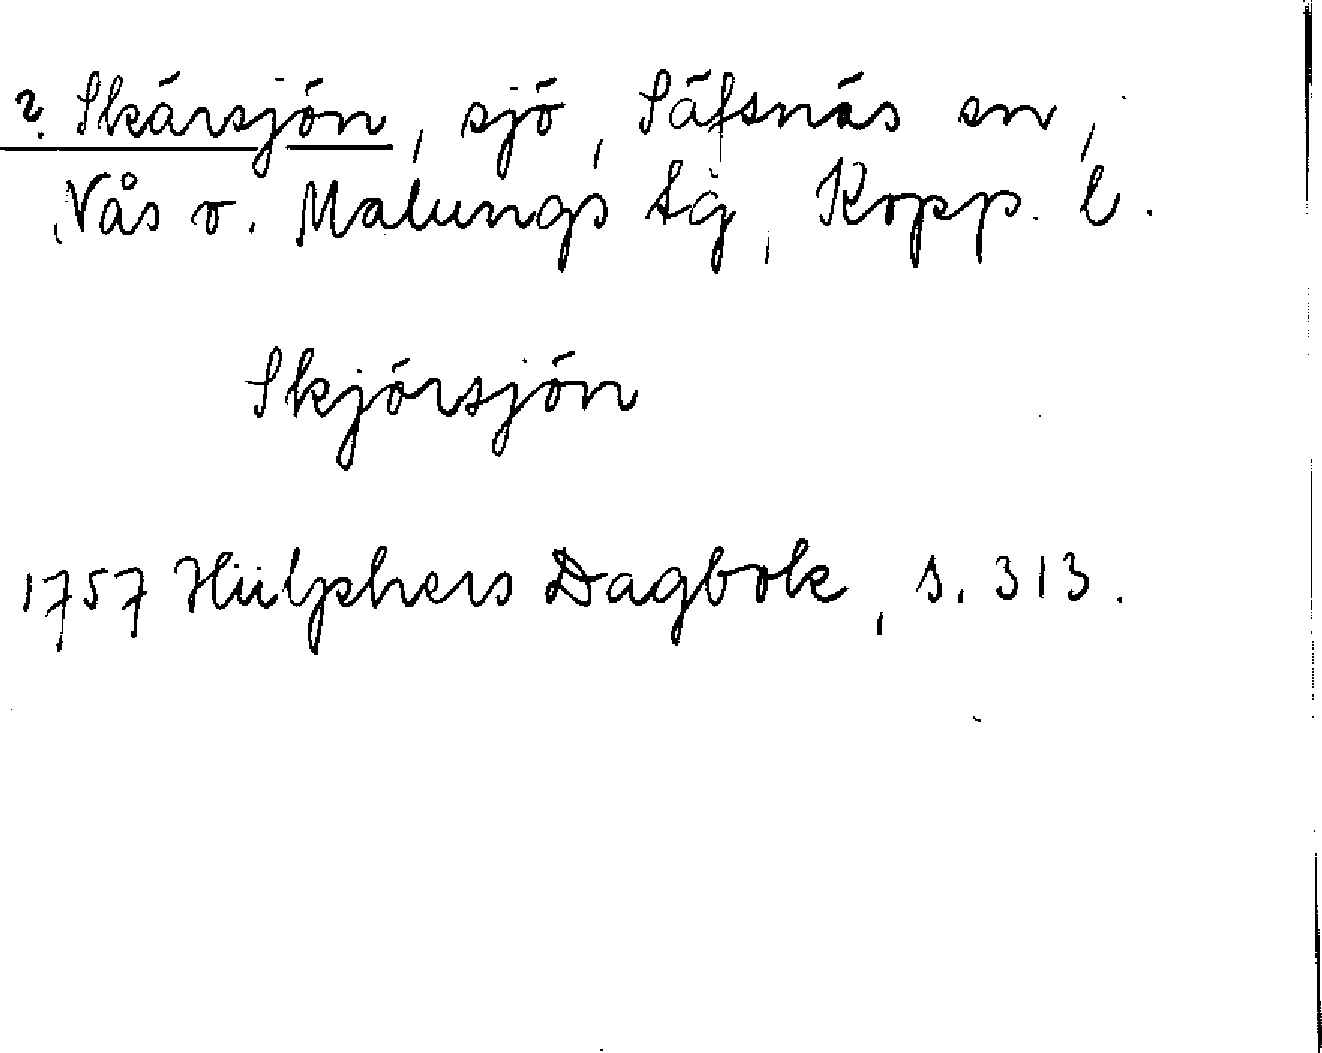 2. Skärsjön, sjö, Säfsnäs sn,
Nås o. Malungs tg, Kopp. l.
Skjörsjön
1757 Hülphers Dagbok, s. 313.